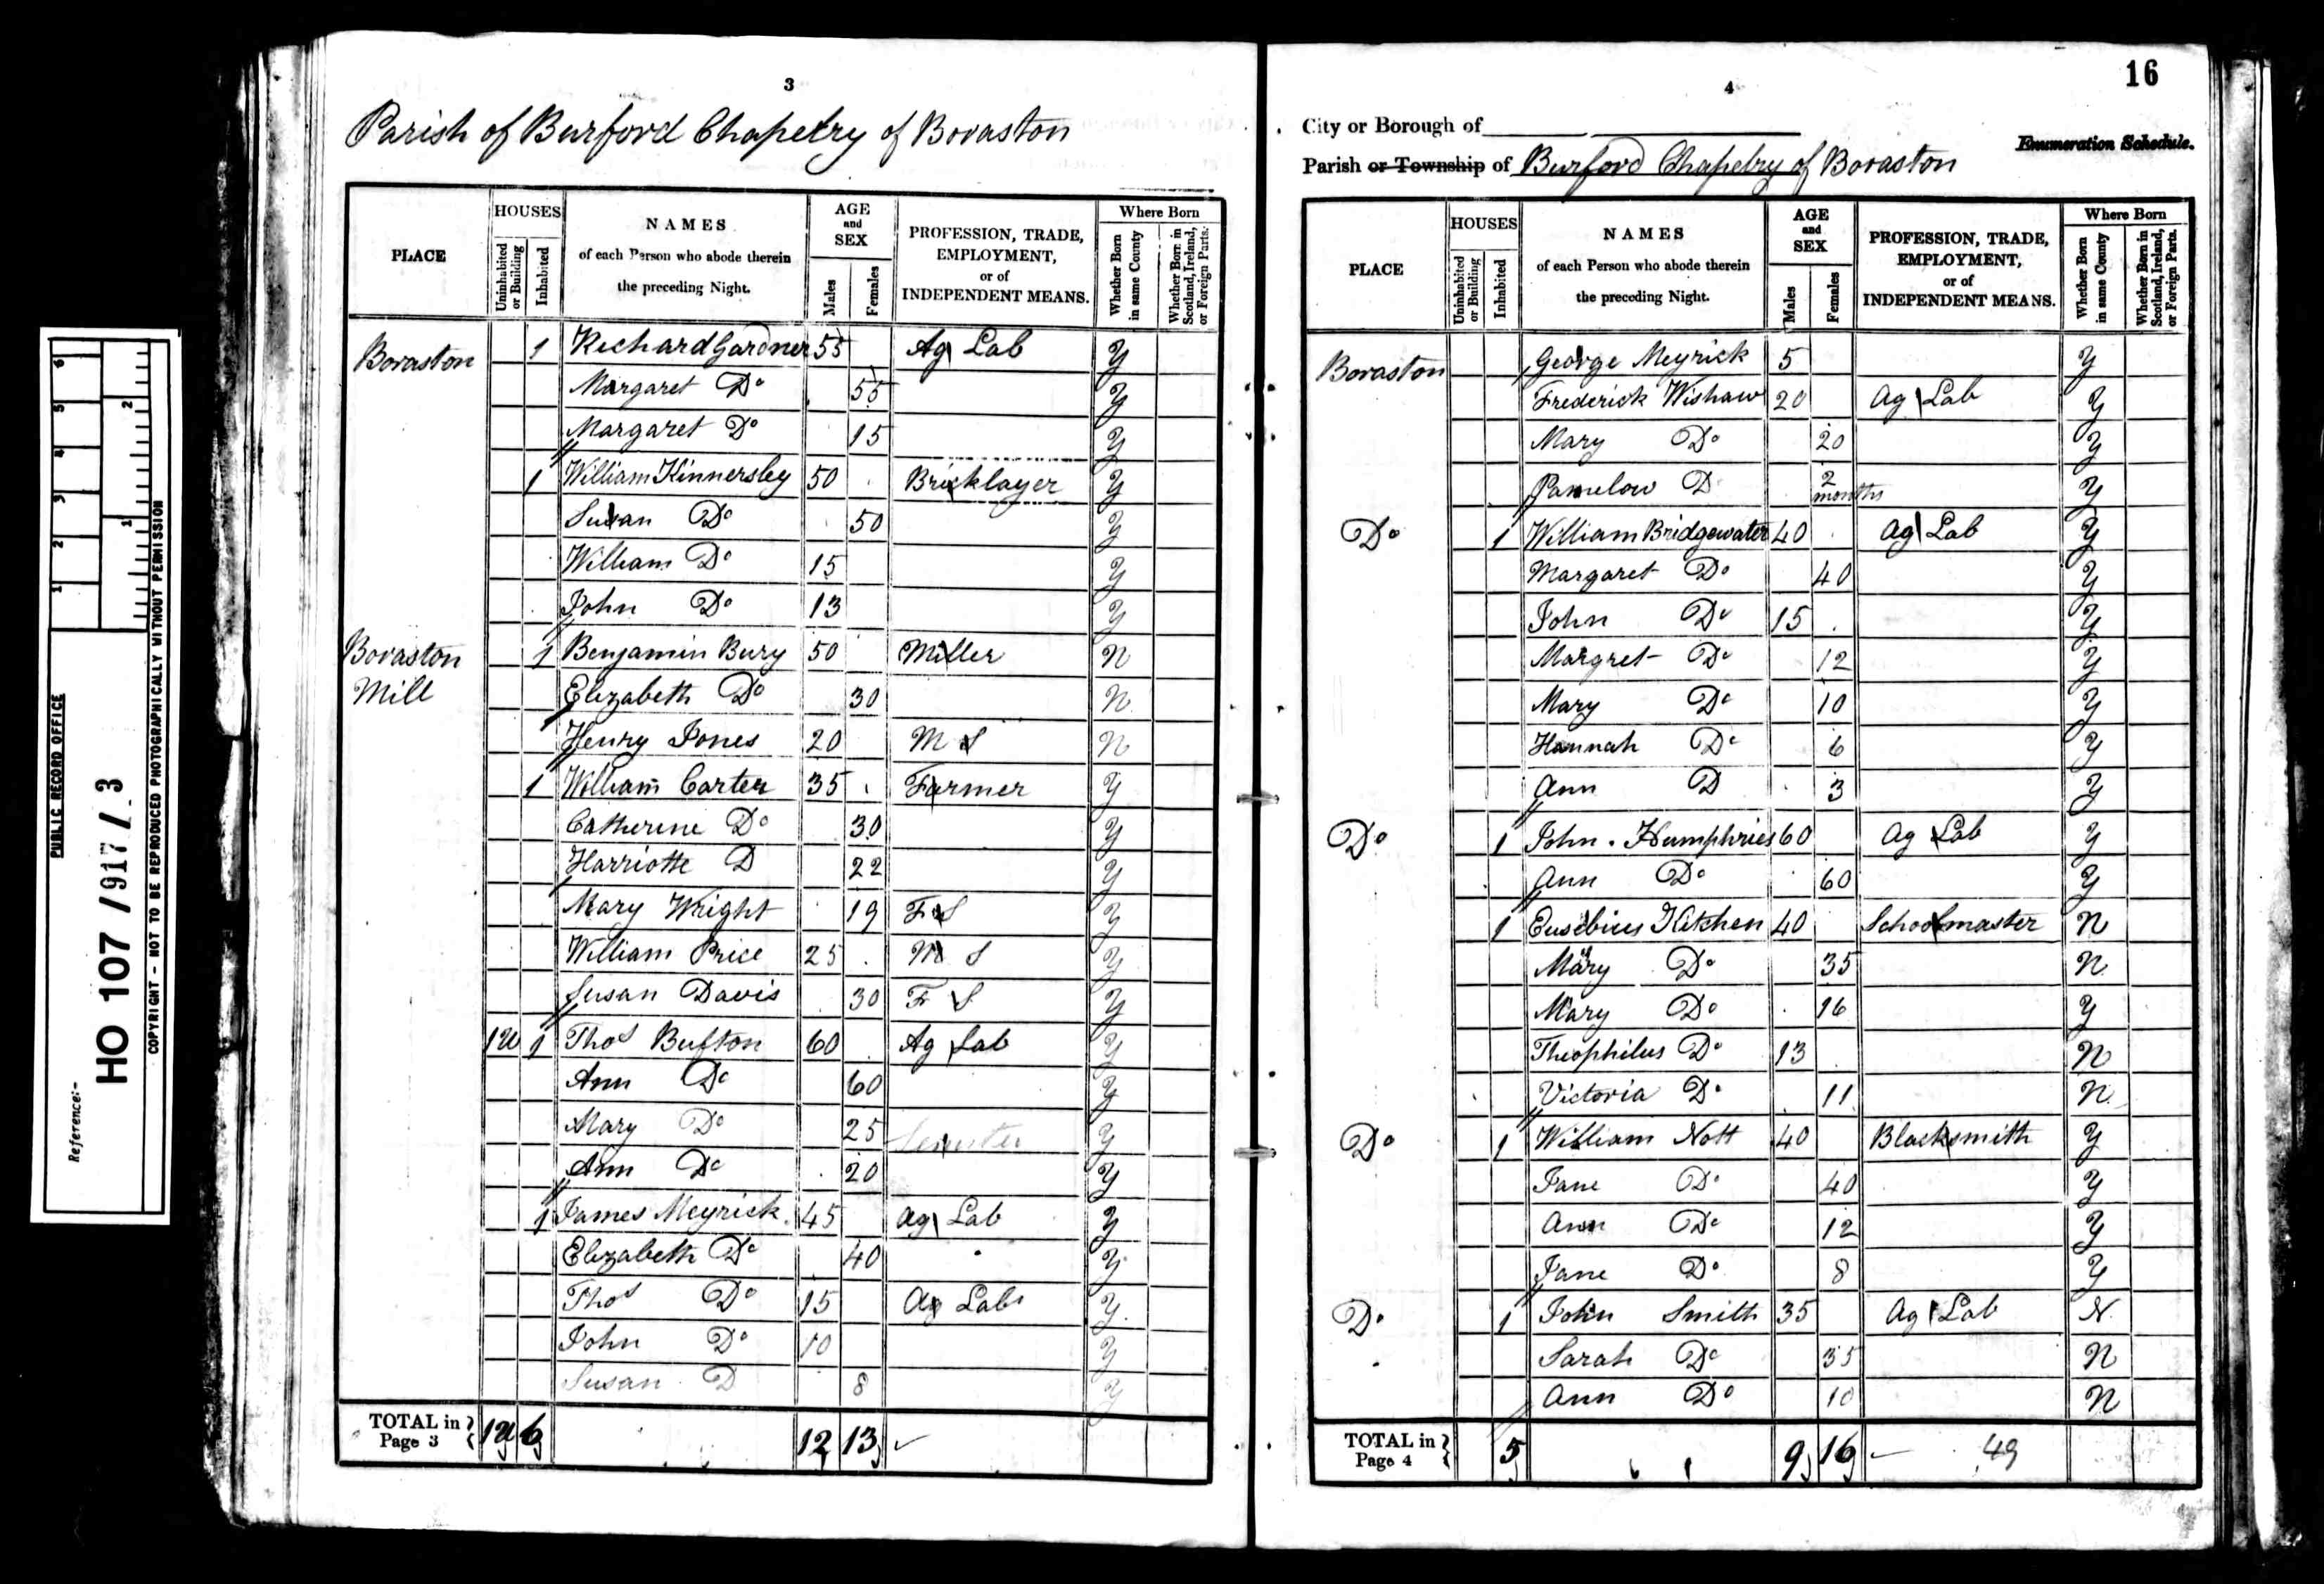 PUBLIC RECORD OFFICE
Reference:-
HO 107 / 917 / 3
COPYRIGHT - NOT TO BE REPRODUCED PHOTOGRAPHICALLY WITHOUT PERMISSION
1 2 3 4 5 6
1 2
3
Parish of Burford Chapelry of Boraston
PLACE
HOUSES
Uninhabited or Building
Inhabited
NAMES
of each Person who abode therein
the preceding Night.
AGE
and
SEX
Males
Females
PROFESSION, TRADE,
EMPLOYMENT,
or of
INDEPENDENT MEANS.
Where Born
Whether Born in same County
Whether Born in Scotland, Ireland, or Foreign Parts.
Boraston 1 Richard Gardner 55 Ag Lab Y
Margaret Do 55 Y
Margaret Do 15 Y
1 William Kinnersley 50 Bricklayer Y
Susan Do 50 Y
William Do 15 Y
John Do 13 Y
Boraston 1 Benjamin Bury 50 Miller N
Mill Elizabeth Do 30 N
Henry Jones 20 M S N
1 William Carter 35 Farmer Y
Catherine Do 30 Y
Harriotte D 22 Y
Mary Wright 19 F S Y
William Price 25 M S Y
Susan Davis 30 F S Y
1U 1 Thos Bufton 60 Ag Lab Y
Ann Do 60 Y
Mary Do 25 Y
Ann Do 20 Y
1 James Meyrick 45 Ag Lab Y
Elizabeth Do 40 Y
Thos Do 15 Ag Lab Y
John Do 10 Y
Susan D 8 Y
TOTAL in Page 3 1U 6 12 13
4
16
City or Borough of
Enumeration Schedule.
Parish or Township of Burford Chapelry of Boraston
PLACE
HOUSES
Uninhabited or Building
Inhabited
NAMES
of each Person who abode therein
the preceding Night.
AGE
and
SEX
Males
Females
PROFESSION, TRADE,
EMPLOYMENT,
or of
INDEPENDENT MEANS.
Where Born
Whether Born in same County
Whether Born in Scotland, Ireland, or Foreign Parts.
Boraston George Meyrick 5 Y
Frederick Wishaw 20 Ag Lab Y
Mary Do 20 Y
Pamelow D 2 months Y
Do 1 William Bridgewater 40 Ag Lab Y
Margaret Do 40 Y
John Do 15 Y
Margret Do 12 Y
Mary Do 10 Y
Hannah Do 6 Y
Ann D 3 Y
Do 1 John Humphries 60 Ag Lab Y
Ann Do 60 Y
1 Eusebius Kitchen 40 Schoolmaster N
Mary Do 35 N
Mary Do 16 Y
Theophilus Do 13 N
Victoria Do 11 N
Do 1 William Nott 40 Blacksmith Y
Jane Do 40 Y
Ann Do 12 Y
Jane Do 8 Y
Do 1 John Smith 35 Ag Lab N
Sarah Do 35 N
Ann Do 10 N
TOTAL in Page 4 5 9 16 49